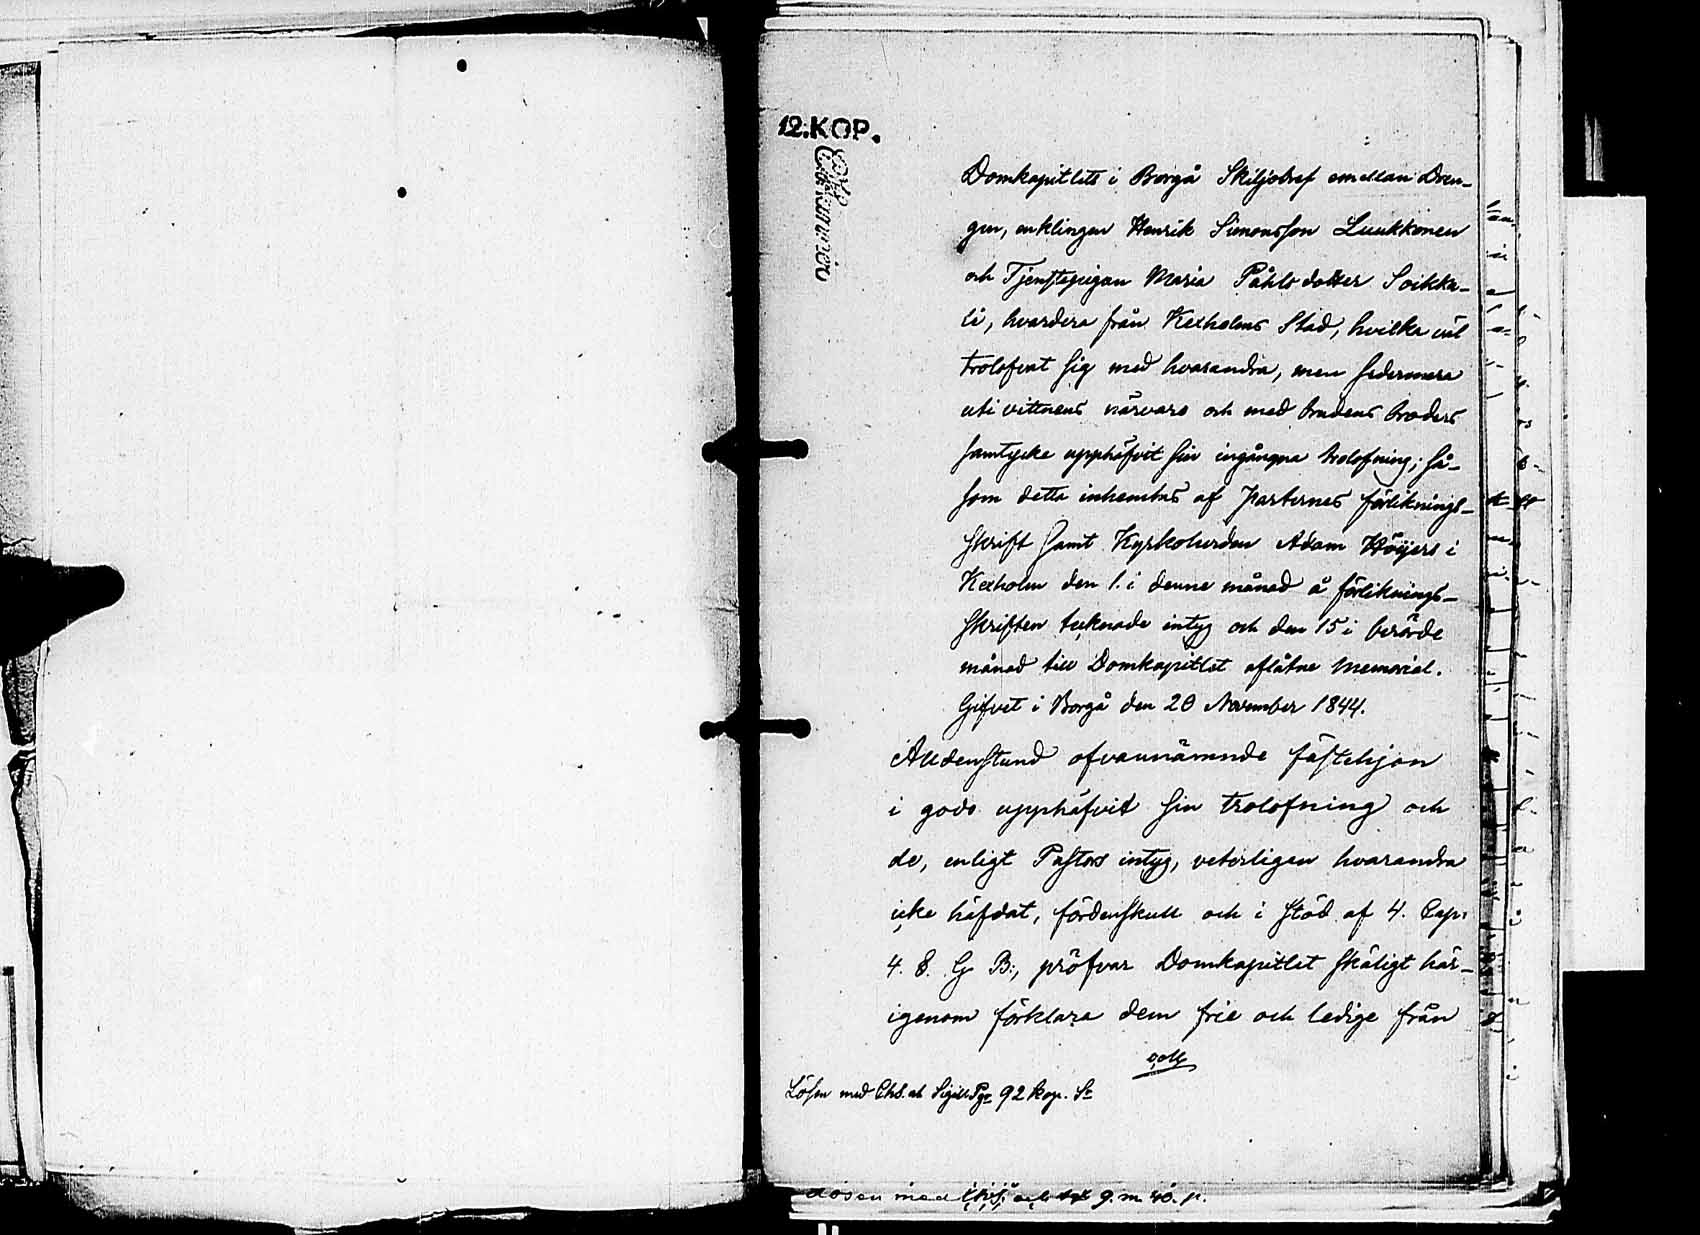 12.KOP.
Domkapitlets i Borgå Skiljobref emellan Dren-
gen, enklingen Henrik Simonsson Luukkonen
och Tjenstepigan Maria Påhlsdotter Soikka-
li, hvardera från Kexholms Stad, hvilka väl
trolofvat sig med hvarandra, men sedermera
uti vittnens närvaro och med brudens broders
samtycke upphäfvit sin ingångna trolofning; så-
som detta inhemtas af Parternes förliknings-
skrift samt Kyrkoherden Adam Höijers i
Kexholm den 1. i denne månad å förliknings-
skriften tecknade intyg och den 15 i berörde
månad till Domkapitlet aflåtne Memorial.
Gifvet i Borgå den 20 November 1844.
Aldenstund ofvannämnde fästehjon
i godo upphäfvit sin trolofning och
de, enligt Pastors intyg, veterligen hvarandra
icke häfdat, fördenskull och i stöd af 4. Cap:
4. §. G B:, pröfvar Domkapitlet skäligt här-
igenom förklara dem frie och ledige från
Lösen med Chs. och Sigill 92 kop. Sr
Lösen med Chs. 9. m 40. p.